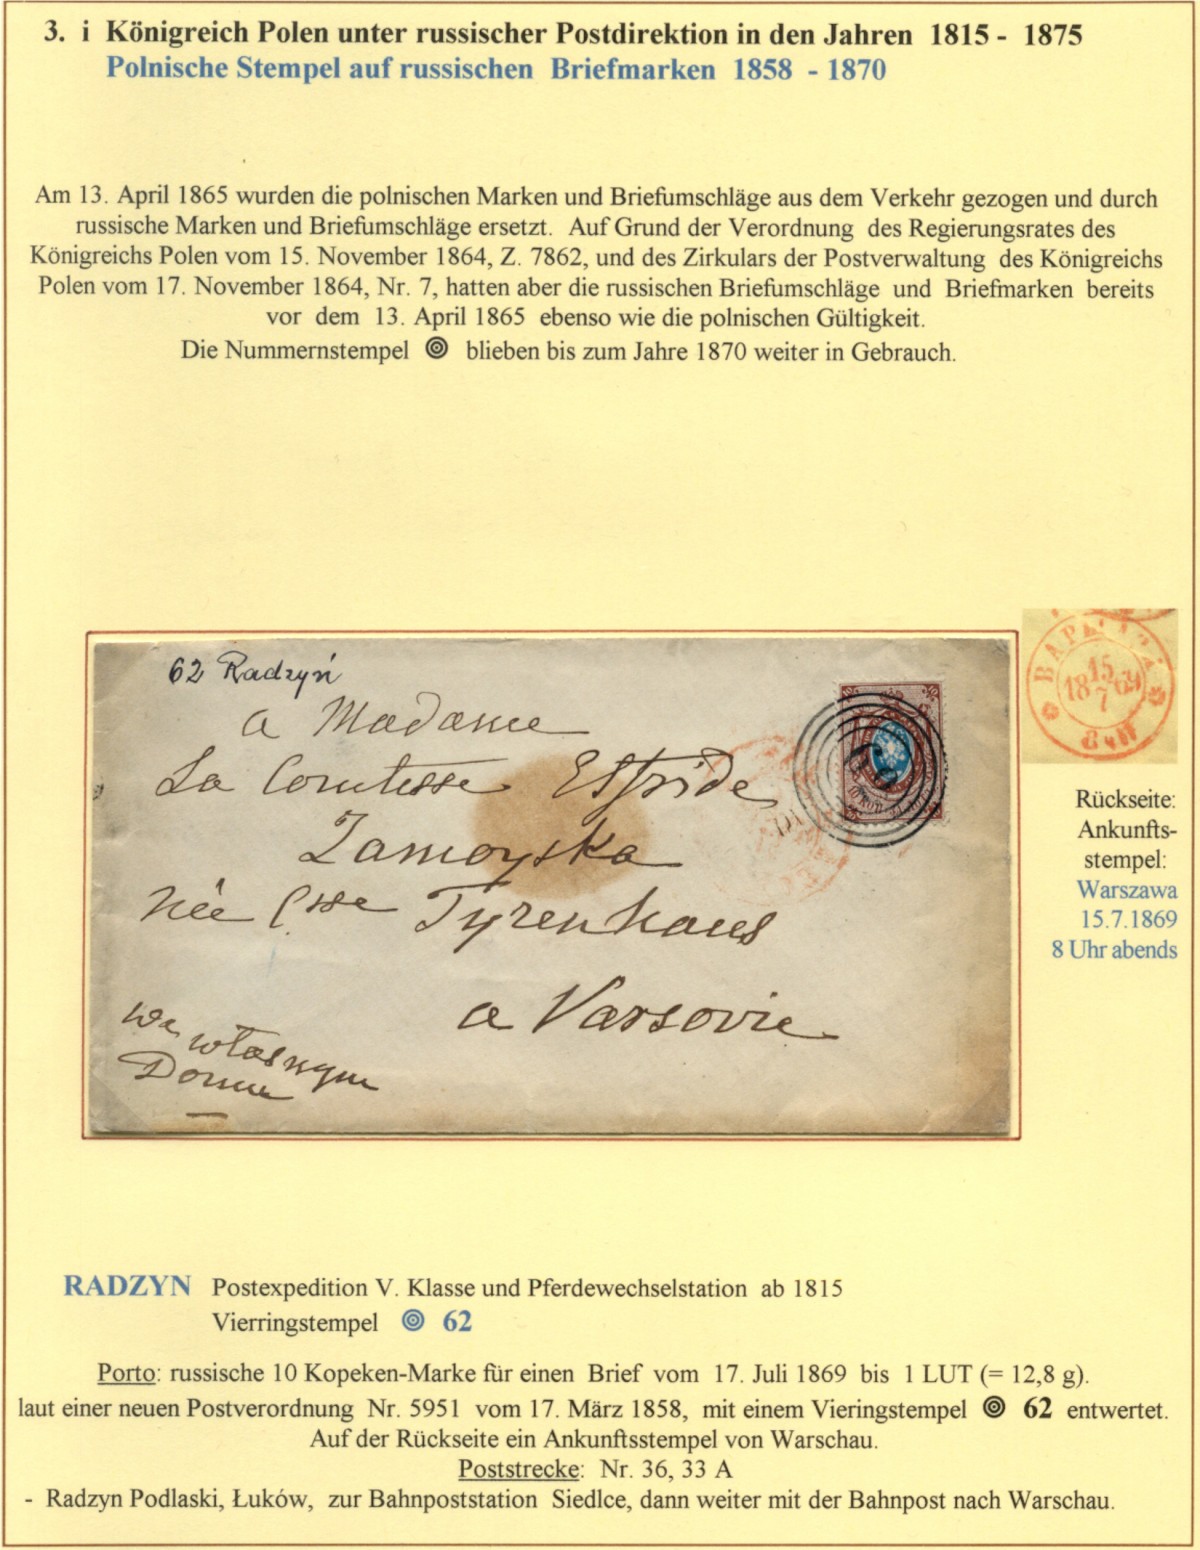 3. i Königreich Polen unter russischer Postdirektion in den Jahren 1815 - 1875
Polnische Stempel auf russischen Briefmarken 1858 - 1870
Am 13. April 1865 wurden die polnischen Marken und Briefumschläge aus dem Verkehr gezogen und durch
russische Marken und Briefumschläge ersetzt. Auf Grund der Verordnung des Regierungsrates des
Königreichs Polen vom 15. November 1864, Z. 7862, und des Zirkulars der Postverwaltung des Königreichs
Polen vom 17. November 1864, Nr. 7, hatten aber die russischen Briefumschläge und Briefmarken bereits
vor dem 13. April 1865 ebenso wie die polnischen Gültigkeit.
Die Nummernstempel blieben bis zum Jahre 1870 weiter in Gebrauch.
62 Radzyń
a Madame
La Comtesse Elfride
Zamoyska
née Csse Tyzenhaus
a Varsovie
we własnym
Domu
62
ВАРШАВА
15
18 69
7
8 ч W
Rückseite:
Ankunfts-
stempel:
Warszawa
15.7.1869
8 Uhr abends
RADZYN Postexpedition V. Klasse und Pferdewechselstation ab 1815
Vierringstempel 62
Porto: russische 10 Kopeken-Marke für einen Brief vom 17. Juli 1869 bis 1 LUT (= 12,8 g).
laut einer neuen Postverordnung Nr. 5951 vom 17. März 1858, mit einem Vieringstempel 62 entwertet.
Auf der Rückseite ein Ankunftsstempel von Warschau.
Poststrecke: Nr. 36, 33 A
- Radzyn Podlaski, Łuków, zur Bahnpoststation Siedlce, dann weiter mit der Bahnpost nach Warschau.